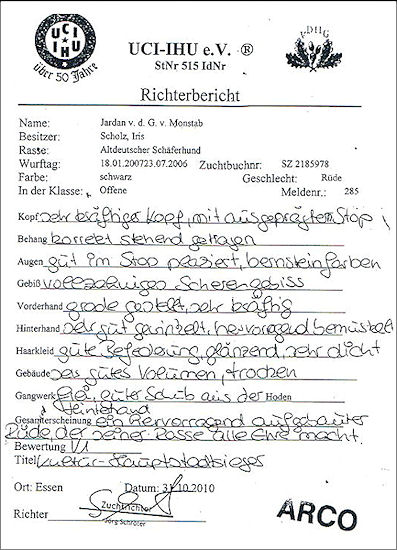 UCI
IHU
über 50 Jahre
UCI-IHU e.V. ®
StNr 515 IdNr
Richterbericht
Name: Jardan v. d. G. v. Monstab
Besitzer: Scholz, Iris
Rasse: Altdeutscher Schäferhund
Wurftag: 18.01.200723.07.2006 Zuchtbuchnr: SZ 2185978
Farbe: schwarz Geschlecht: Rüde
In der Klasse: Offene Meldenr.: 285
Kopf sehr kräftiger Kopf, mit ausgeprägtem Stop
Behang korrekt stehend getragen
Augen gut im Stop plaziert, bernsteinfarben
Gebiß vollzahniges Scherengebiss
Vorderhand grade gestellt, sehr kräftig
Hinterhand sehr gut gewinkelt, hervorragend bemuskelt
Haarkleid gute Befederung, glänzend, sehr dicht
Gebäude gutes Volumen, trocken
Gangwerk Frei, guter Schub aus der Hoden
Hinterhand
Gesamterscheinung ein hervorragend aufgebauter
Rüde, der seiner Rasse alle Ehre macht.
Bewertung V1
Titel Kultur-Hauptstadtsieger
Ort: Essen Datum: 31.10.2010
Richter Zuchtrichter
Jörg Schröter
ARCO